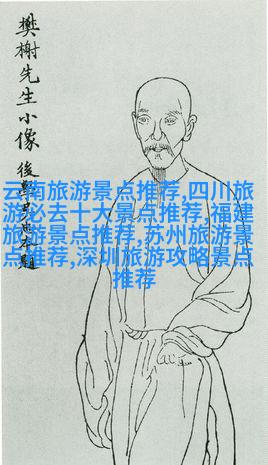 樊榭先生小像
後
題
云南旅游景点推荐,四川旅
游必去十大景点推荐,福建
旅游景点推荐,苏州旅游景
点推荐,深圳旅游攻略景点
推荐